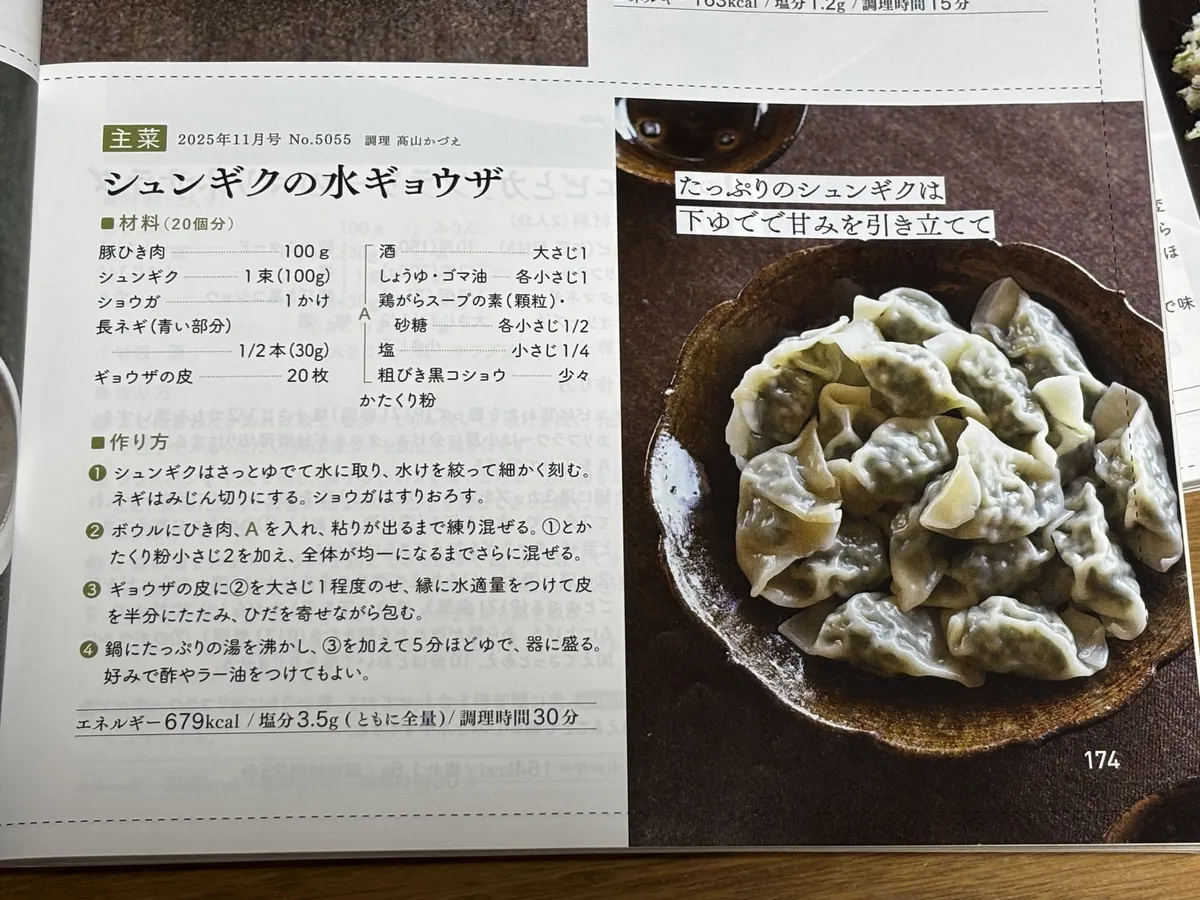 エネルギー 163kcal / 塩分1.2g / 調理時間15分
主菜 2025年11月号 No.5055 調理 髙山かづえ
シュンギクの水ギョウザ
■材料(20個分)
豚ひき肉 100g
シュンギク 1束(100g)
ショウガ 1かけ
長ネギ(青い部分)
1/2本(30g)
ギョウザの皮 20枚
A
酒 大さじ1
しょうゆ・ゴマ油 各小さじ1
鶏がらスープの素(顆粒)・
砂糖 各小さじ1/2
塩 小さじ1/4
粗びき黒コショウ 少々
かたくり粉
■作り方
❶ シュンギクはさっとゆでて水に取り、水けを絞って細かく刻む。
ネギはみじん切りにする。ショウガはすりおろす。
❷ ボウルにひき肉、Aを入れ、粘りが出るまで練り混ぜる。①とか
たくり粉小さじ2を加え、全体が均一になるまでさらに混ぜる。
❸ ギョウザの皮に②を大さじ1程度のせ、縁に水適量をつけて皮
を半分にたたみ、ひだを寄せながら包む。
❹ 鍋にたっぷりの湯を沸かし、③を加えて5分ほどゆで、器に盛る。
好みで酢やラー油をつけてもよい。
エネルギー679kcal / 塩分3.5g (ともに全量) / 調理時間30分
たっぷりのシュンギクは
下ゆでで甘みを引き立てて
174
ほ
で味